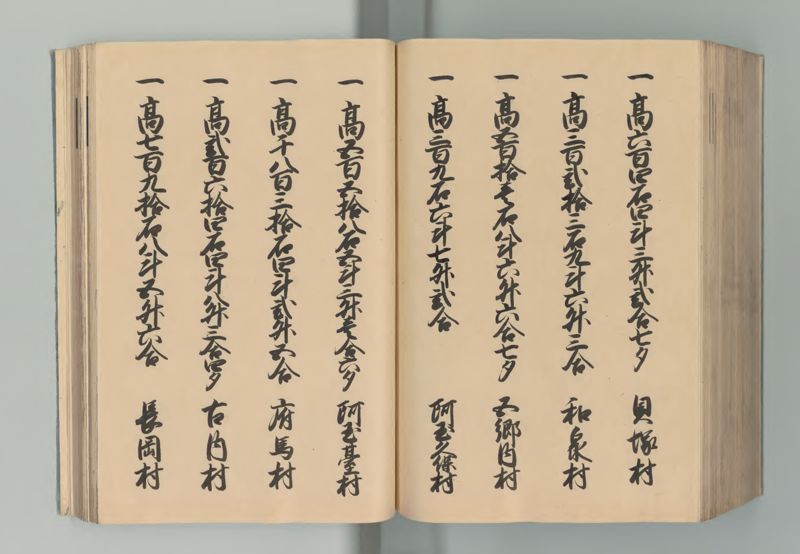 一 高六百四石四斗三升弐合七夕 貝塚村
一 高三百弐拾三石九斗六升三合 和泉村
一 高五百拾壱石八斗六升六合七夕 五郷内村
一 高三百九石六斗七升弐合 阿玉久保村
一 高五百五拾八石五斗三升壱合六夕 阿玉基村
一 高千八百三拾石四斗弐升五合 府馬村
一 高弐百六拾四石四斗八升三合四夕 古内村
一 高七百九拾石八斗五升六合 長岡村